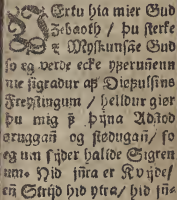 VErtu hia mier Gud
Zebaoth / þu sterke
og Myskunsãe Gud
so eg verde ecke yfervennenn
nie sigradur af Diøfulsins
Freystingum / helldur giør
þu mig fyrer þijna Adstod
øruggañ og stødugañ / so
eg um sijder hallde Sigren
um. Nid jñra er Kvijde/
eñ Strijd hid ytra / hid jñ-